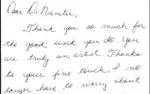 Dear Dr. Nanstie,
Thank you so much for
the good work you do. You
are truly an artist. Thanks
to your fine touch I no
longer have to worry about